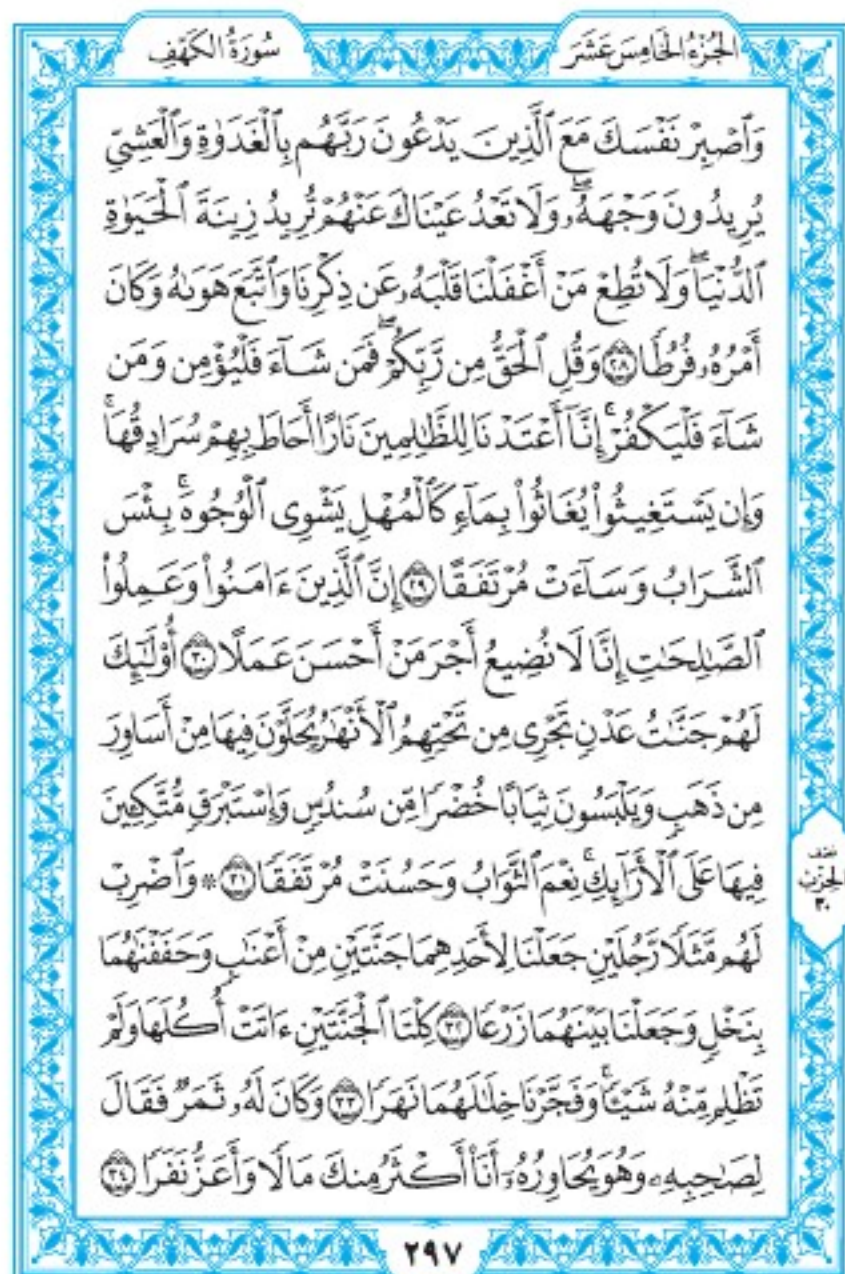 الجُزْءُ الخَامِسَ عَشَرَ
سُورَةُ الكَهْفِ
وَٱصْبِرْ نَفْسَكَ مَعَ ٱلَّذِينَ يَدْعُونَ رَبَّهُم بِٱلْغَدَوٰةِ وَٱلْعَشِىِّ
يُرِيدُونَ وَجْهَهُۥۖ وَلَا تَعْدُ عَيْنَاكَ عَنْهُمْ تُرِيدُ زِينَةَ ٱلْحَيَوٰةِ
ٱلدُّنْيَاۖ وَلَا تُطِعْ مَنْ أَغْفَلْنَا قَلْبَهُۥ عَن ذِكْرِنَا وَٱتَّبَعَ هَوَىٰهُ وَكَانَ
أَمْرُهُۥ فُرُطًا ٢٨ وَقُلِ ٱلْحَقُّ مِن رَّبِّكُمْۖ فَمَن شَآءَ فَلْيُؤْمِن وَمَن
شَآءَ فَلْيَكْفُرْۚ إِنَّآ أَعْتَدْنَا لِلظَّٰلِمِينَ نَارًا أَحَاطَ بِهِمْ سُرَادِقُهَاۚ
وَإِن يَسْتَغِيثُوا۟ يُغَاثُوا۟ بِمَآءٍ كَٱلْمُهْلِ يَشْوِى ٱلْوُجُوهَۚ بِئْسَ
ٱلشَّرَابُ وَسَآءَتْ مُرْتَفَقًا ٢٩ إِنَّ ٱلَّذِينَ ءَامَنُوا۟ وَعَمِلُوا۟
ٱلصَّٰلِحَٰتِ إِنَّا لَا نُضِيعُ أَجْرَ مَنْ أَحْسَنَ عَمَلًا ٣٠ أُو۟لَٰٓئِكَ
لَهُمْ جَنَّٰتُ عَدْنٍ تَجْرِى مِن تَحْتِهِمُ ٱلْأَنْهَٰرُ يُحَلَّوْنَ فِيهَا مِنْ أَسَاوِرَ
مِن ذَهَبٍ وَيَلْبَسُونَ ثِيَابًا خُضْرًا مِّن سُندُسٍ وَإِسْتَبْرَقٍ مُّتَّكِـِٔينَ
فِيهَا عَلَى ٱلْأَرَآئِكِۚ نِعْمَ ٱلثَّوَابُ وَحَسُنَتْ مُرْتَفَقًا ٣١ * وَٱضْرِبْ
لَهُم مَّثَلًا رَّجُلَيْنِ جَعَلْنَا لِأَحَدِهِمَا جَنَّتَيْنِ مِنْ أَعْنَٰبٍ وَحَفَفْنَٰهُمَا
بِنَخْلٍ وَجَعَلْنَا بَيْنَهُمَا زَرْعًا ٣٢ كِلْتَا ٱلْجَنَّتَيْنِ ءَاتَتْ أُكُلَهَا وَلَمْ
تَظْلِم مِّنْهُ شَيْـًٔاۚ وَفَجَّرْنَا خِلَٰلَهُمَا نَهَرًا ٣٣ وَكَانَ لَهُۥ ثَمَرٌ فَقَالَ
لِصَٰحِبِهِۦ وَهُوَ يُحَاوِرُهُۥٓ أَنَا۠ أَكْثَرُ مِنكَ مَالًا وَأَعَزُّ نَفَرًا ٣٤
نصف
الحزب
٣٠
٢٩٧